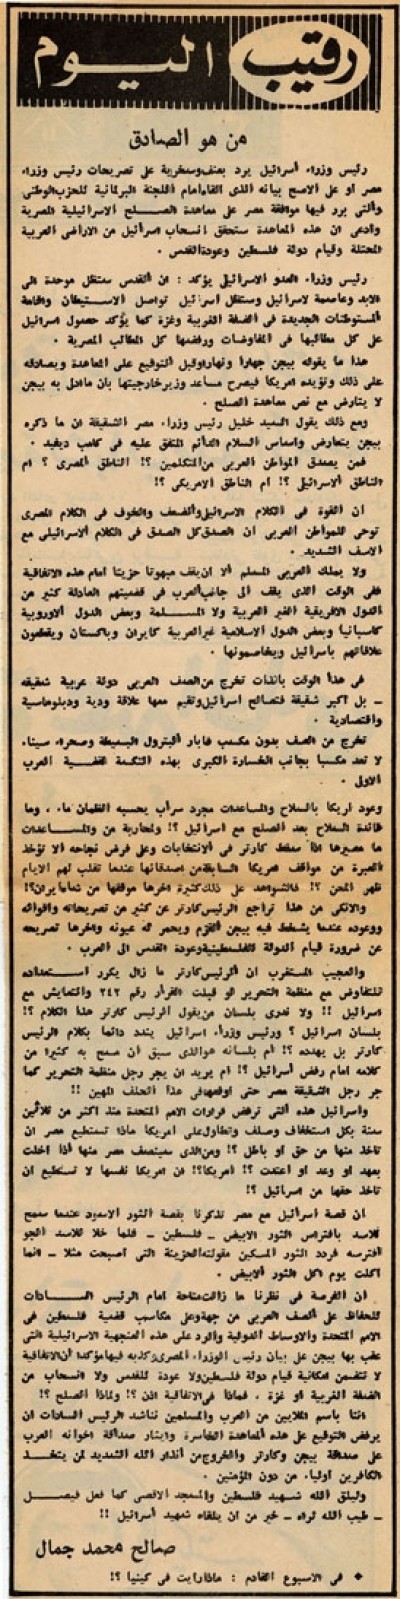 رقيب اليوم
من هو الصادق
رئيس وزراء اسرائيل يرد بعنف وسخرية على تصريحات رئيس وزراء
مصر او على الاصح بيانه الذى القاه امام اللجنة البرلمانية للحزب الوطنى
والتى برر فيها موافقة مصر على معاهدة الصلح الاسرائيلية المصرية
وادعى ان هذه المعاهدة ستحقق انسحاب اسرائيل من الاراضى العربية
المحتلة وقيام دولة فلسطين وعودة القدس .
رئيس وزراء العدو الاسرائيلى يؤكد : ان القدس ستظل موحدة الى
الابد وعاصمة لاسرائيل وستظل اسرائيل تواصل الاستيطان واقامة
المستوطنات الجديدة فى الضفة الغربية وغزة كما يؤكد حصول اسرائيل
على كل مطالبها فى المفاوضات ورفضها كل المطالب المصرية .
هذا ما يقوله بيجن جهارا ونهارا وقبل التوقيع على المعاهدة ويصادقه
على ذلك وتؤيده امريكا فيصرح مساعد وزير خارجيتها بان ما ادلى به بيجن
لا يتعارض مع نص معاهدة الصلح .
ومع ذلك يقول السيد خليل رئيس وزراء مصر الشقيقة ان ما ذكره
بيجن يتعارض واساس السلام الدائم المتفق عليه فى كامب ديفيد .
فمن يصدق المواطن العربى من المتكلمين ؟! الناطق المصرى ؟ ام
الناطق الاسرائيلى ؟! ام الناطق الامريكى ؟!
ان القوة فى الكلام الاسرائيلى والضعف والخوف فى الكلام المصرى
توحى للمواطن العربى ان الصدق كل الصدق فى الكلام الاسرائيلى مع
الاسف الشديد .
ولا يملك العربى المسلم الا ان يقف مبهوتا حزينا امام هذه الاتفاقية
ففى الوقت الذى يقف الى جانب العرب فى قضيتهم العادلة كثير من
الدول الافريقية الغير العربية ولا المسلمة وبعض الدول الاوروبية
كاسبانيا وبعض الدول الاسلامية غير العربية كايران وباكستان ويقطعون
علاقاتهم باسرائيل ويخاصمونها .
فى هذا الوقت بالذات تخرج من الصف العربى دولة عربية شقيقه
ـ بل اكبر شقيقة فتصالح اسرائيل وتقيم معها علاقة ودية ودبلوماسية
واقتصادية .
تخرج من الصف بدون مكسب فابار البترول البسيطة وصحراء سيناء
لا تعد مكسبا بجانب الخسارة الكبرى بهذه النكسة لقضية العرب
الاولى .
وعود امريكا بالسلاح والمساعدات مجرد سراب يحسبه الظمان ماء ، وما
فائدة السلاح بعد الصلح مع اسرائيل ؟! ولمحاربة من والمساعدات
ما مصيرها اذا سقط كارتر فى الانتخابات وعلى فرض نجاحه الا تؤخذ
العبرة من مواقف امريكا السابقة من اصدقائها عندما تقلب لهم الايام
ظهر المجن ؟! فالشواهد على ذلك كثيرة اخرها موقفها من شاه ايران ؟!
والانكى من هذا تراجع الرئيس كارتر عن كثير من تصريحاته واقواله
ووعوده عندما يشخط فيه بيجن القزم ويحمر له عيونه واخرها تصريحه
عن ضرورة قيام الدولة الفلسطينية وعودة القدس الى العرب .
والعجيب المستغرب ان الرئيس كارتر ما زال يكرر استعداده
للتفاوض مع منظمة التحرير لو قبلت القرار رقم ٢٤٢ والتعايش مع
اسرائيل !! ولا ندرى بلسان من يقول الرئيس كارتر هذا الكلام ؟!
بلسان اسرائيل ؟ ورئيس وزراء اسرائيل يندد دائما بكلام الرئيس
كارتر بل يهدده ؟! ام بلسانه هو الذى سبق أن سمح به كثيرا من
كلامه امام رفض اسرائيل ؟! ام يريد ان يجر رجل منظمة التحرير كما
جر رجل الشقيقة مصر حتى اوقعها فى هذا الحلف المهين !!
واسرائيل هذه التى ترفض قرارات الامم المتحدة منذ اكثر من ثلاثين
سنة بكل استخفاف وصلف وتطاول على امريكا ماذا تستطيع مصر ان
تاخذ منها من حق او باطل ؟! ومن الذى سينصف مصر منها اذا اخلت
بعهد او وعد او اعتدت ؟! امريكا ؟! ان امريكا نفسها لا تستطيع ان
تاخذ حقها من اسرائيل ؟!
ان قصة اسرائيل مع مصر تذكرنا بقصة الثور الاسود عندما سمح
للاسد بافتراس الثور الابيض ـ فلسطين ـ فلما خلا للاسد الجو
افترسه فردد الثور المسكين مقولته الحزينة التى اصبحت مثلا ـ انما
اكلت يوم اكل الثور الابيض .
ان الفرصة فى نظرنا ما زالت متاحة امام الرئيس السادات
للحفاظ على الصف العربى من جهة وعلى مكاسب قضية فلسطين فى
الامم المتحدة والاوساط الدولية والرد على هذه العنجهية الاسرائيلية التى
عقب بها بيجن على بيان رئيس الوزراء المصرى وكذبه فيها مؤكدا ان الاتفاقية
لا تتضمن امكانية قيام دولة فلسطين ولا عودة للقدس ولا انسحاب من
الضفة الغربية او غزة ، فماذا فى الاتفاقية اذن ؟! ولماذا الصلح ؟!
اننا باسم الملايين من العرب والمسلمين نناشد الرئيس السادات ان
يرفض التوقيع على هذه المعاهدة الخاسرة وايثار صداقة اخوانه العرب
على صداقة بيجن وكارتر والخروج من انذار الله الشديد لمن يتخذ
الكافرين اولياء من دون المؤمنين .
وليلق الله شهيد فلسطين والمسجد الاقصى كما فعل فيصل
ـ طيب الله ثراه ـ خير من ان يلقاه شهيد اسرائيل !!
صالح محمد جمال
* فى الاسبوع القادم : ماذا رايت فى كينيا ؟!